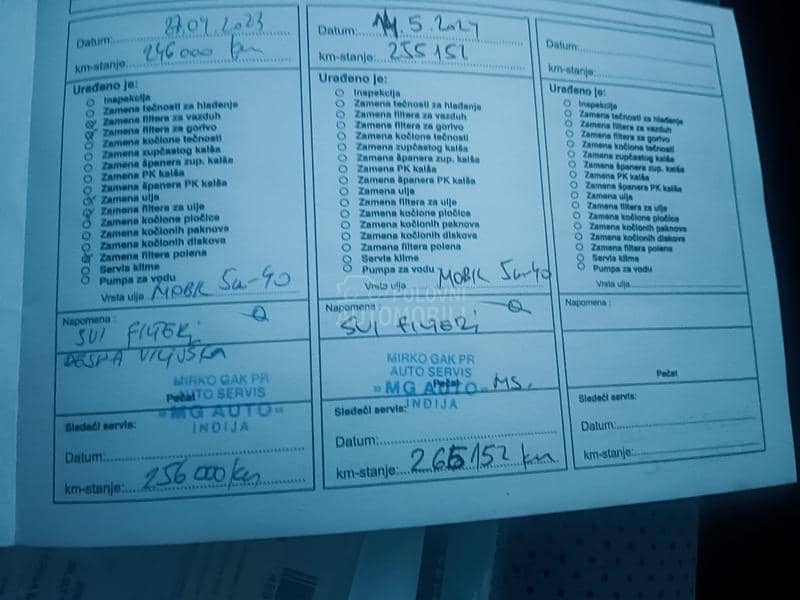 Datum: 27.04.2023
km-stanje: 246000 km
Urađeno je:
Inspekcija
Zamena tečnosti za hlađenje
Zamena filtera za vazduh
Zamena filtera za gorivo
Zamena kočione tečnosti
Zamena zupčastog kaiša
Zamena španera zup. kaiša
Zamena PK kaiša
Zamena španera PK kaiša
Zamena ulja
Zamena filtera za ulje
Zamena kočione pločice
Zamena kočionih paknova
Zamena kočionih diskova
Zamena filtera polena
Servis klime
Pumpa za vodu
Vrsta ulja MOBIL 5w-40
Napomena :
SVI FILTERI
DESNA VILJUŠKA
MIRKO GAK PR
AUTO SERVIS
Pečat
»MG AUTO«
INĐIJA
Sledeći servis:
Datum:
km-stanje: 256000 km
Datum: 14.5.2024
km-stanje: 255152
Urađeno je:
Inspekcija
Zamena tečnosti za hlađenje
Zamena filtera za vazduh
Zamena filtera za gorivo
Zamena kočione tečnosti
Zamena zupčastog kaiša
Zamena španera zup. kaiša
Zamena PK kaiša
Zamena španera PK kaiša
Zamena ulja
Zamena filtera za ulje
Zamena kočione pločice
Zamena kočionih paknova
Zamena kočionih diskova
Zamena filtera polena
Servis klime
Pumpa za vodu
Vrsta ulja MOBIL 5w-40
POLOVNI
AUTOMOBILI
Napomena :
SVI FILTERI
MIRKO GAK PR
AUTO SERVIS
»MG AUTO« MS.
Pečat
INĐIJA
Sledeći servis:
Datum:
km-stanje: 265152 km
Datum:
km-stanje:
Urađeno je:
Inspekcija
Zamena tečnosti za hlađenje
Zamena filtera za vazduh
Zamena filtera za gorivo
Zamena kočione tečnosti
Zamena zupčastog kaiša
Zamena španera zup. kaiša
Zamena PK kaiša
Zamena španera PK kaiša
Zamena ulja
Zamena filtera za ulje
Zamena kočione pločice
Zamena kočionih paknova
Zamena kočionih diskova
Zamena filtera polena
Servis klime
Pumpa za vodu
Vrsta ulja
Napomena :
Pečat
Sledeći servis:
Datum:
km-stanje: